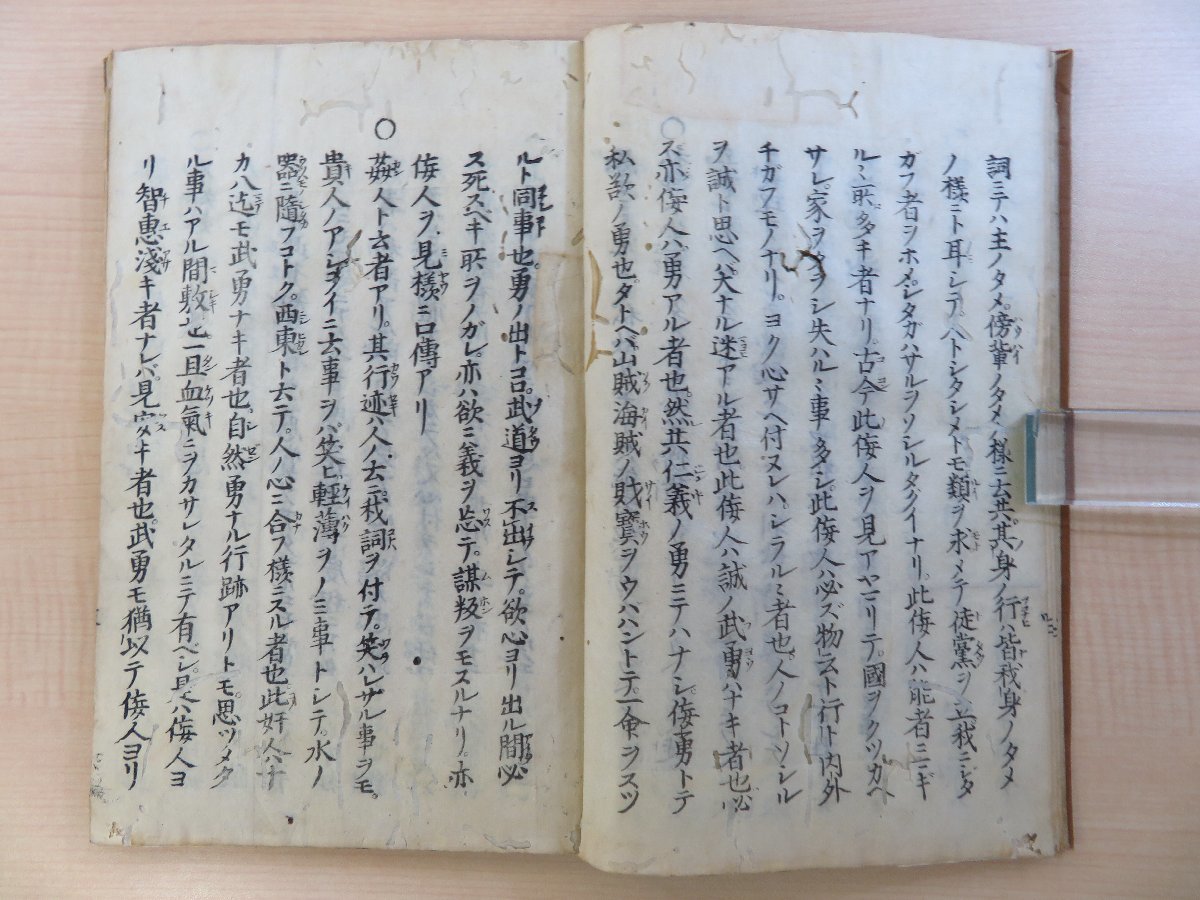 詞ニテハ主ノタメ傍輩ノタメノ様ニ云共其身ノ行ハ皆我身ノタメ
ノ様ニト耳シテヘトシタシメトモ類ヲ求メテ徒黨ヲ立我ニシタ
ガフ者ヲホメシタガハサルヲソシルタグイナリ此侫人ハ能者ニギ
ルミ所多キ者ナリ古今此侫人ヲ見アヤマリテ國ヲクツカヘ
サレ家ヲ シ失ハルミ事多シ此侫人ハ必ズ物云ト行ト内外
チガフモノナリヨク心サヘ付ヌレハシラルミ者也人ノコトソシル
ヲ誠ト思ヘハ大ナル迷アル者也此侫人ハ誠ノ武勇ハナキ者也必
ス亦侫人ハ勇アル者也然共仁義ノ勇ニテハナシ侫勇トテ
〇私欲ノ勇也タトヘバ山賊海賊ノ財寳ヲウハハントテ一命ヲスツ
ルト同事也勇ノ出トコロ武道ヨリ不出シテ欲心ヨリ出ル間必
ス死スベキ所ヲノガレ亦ハ欲ニ義ヲ忘テ謀叛ヲモスルナリ亦
侫人ヲ見様ニ口傳アリ
〇姦人ト云者アリ其行迹ハ人ノ云 我詞ヲ付テ笑ハレザル事ヲモ
貴人ノアシヨイニ云事ヲバ笑ヒ軽薄ヲノミ事トシテ水ノ
器ニ隨フコトク西東ト云テ人ノ心ニ合フ様ニスル者也此奸人ハナ
カ八迄モ武勇ナキ者也自然勇ナル行跡アリトモ思ツメタ
ル事ハアル間敷也一旦血氣ニヲカサレタルニテ有ベシ是ハ侫人ヨ
リ智惠淺キ者ナレバ見安キ者也武勇モ猶以テ侫人ヨリ